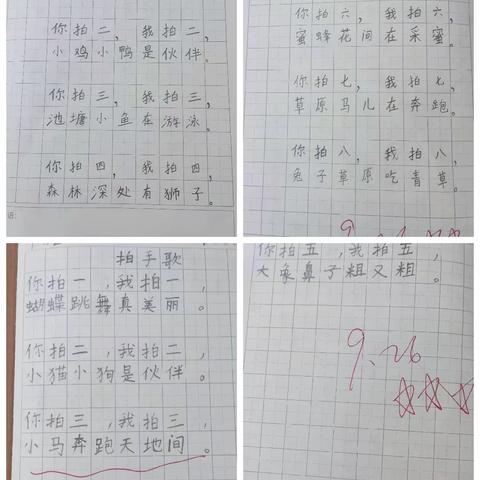 你拍二，我拍二，
小鸡小鸭是伙伴。
你拍三，我拍三，
池塘小鱼在游泳。
你拍四，我拍四，
森林深处有狮子。
语:
你拍六，我拍六，
蜜蜂花间在采蜜。
你拍七，我拍七，
草原马儿在奔跑。
你拍八，我拍八，
兔子草原吃青草。
拍手歌
你拍一，我拍一，
蝴蝶跳舞真美丽。
你拍二，我拍二，
小猫小狗是伙伴。
你拍三，我拍三，
小马奔跑天地间。
你拍五，我拍五，
大象鼻子粗又粗。
9.26